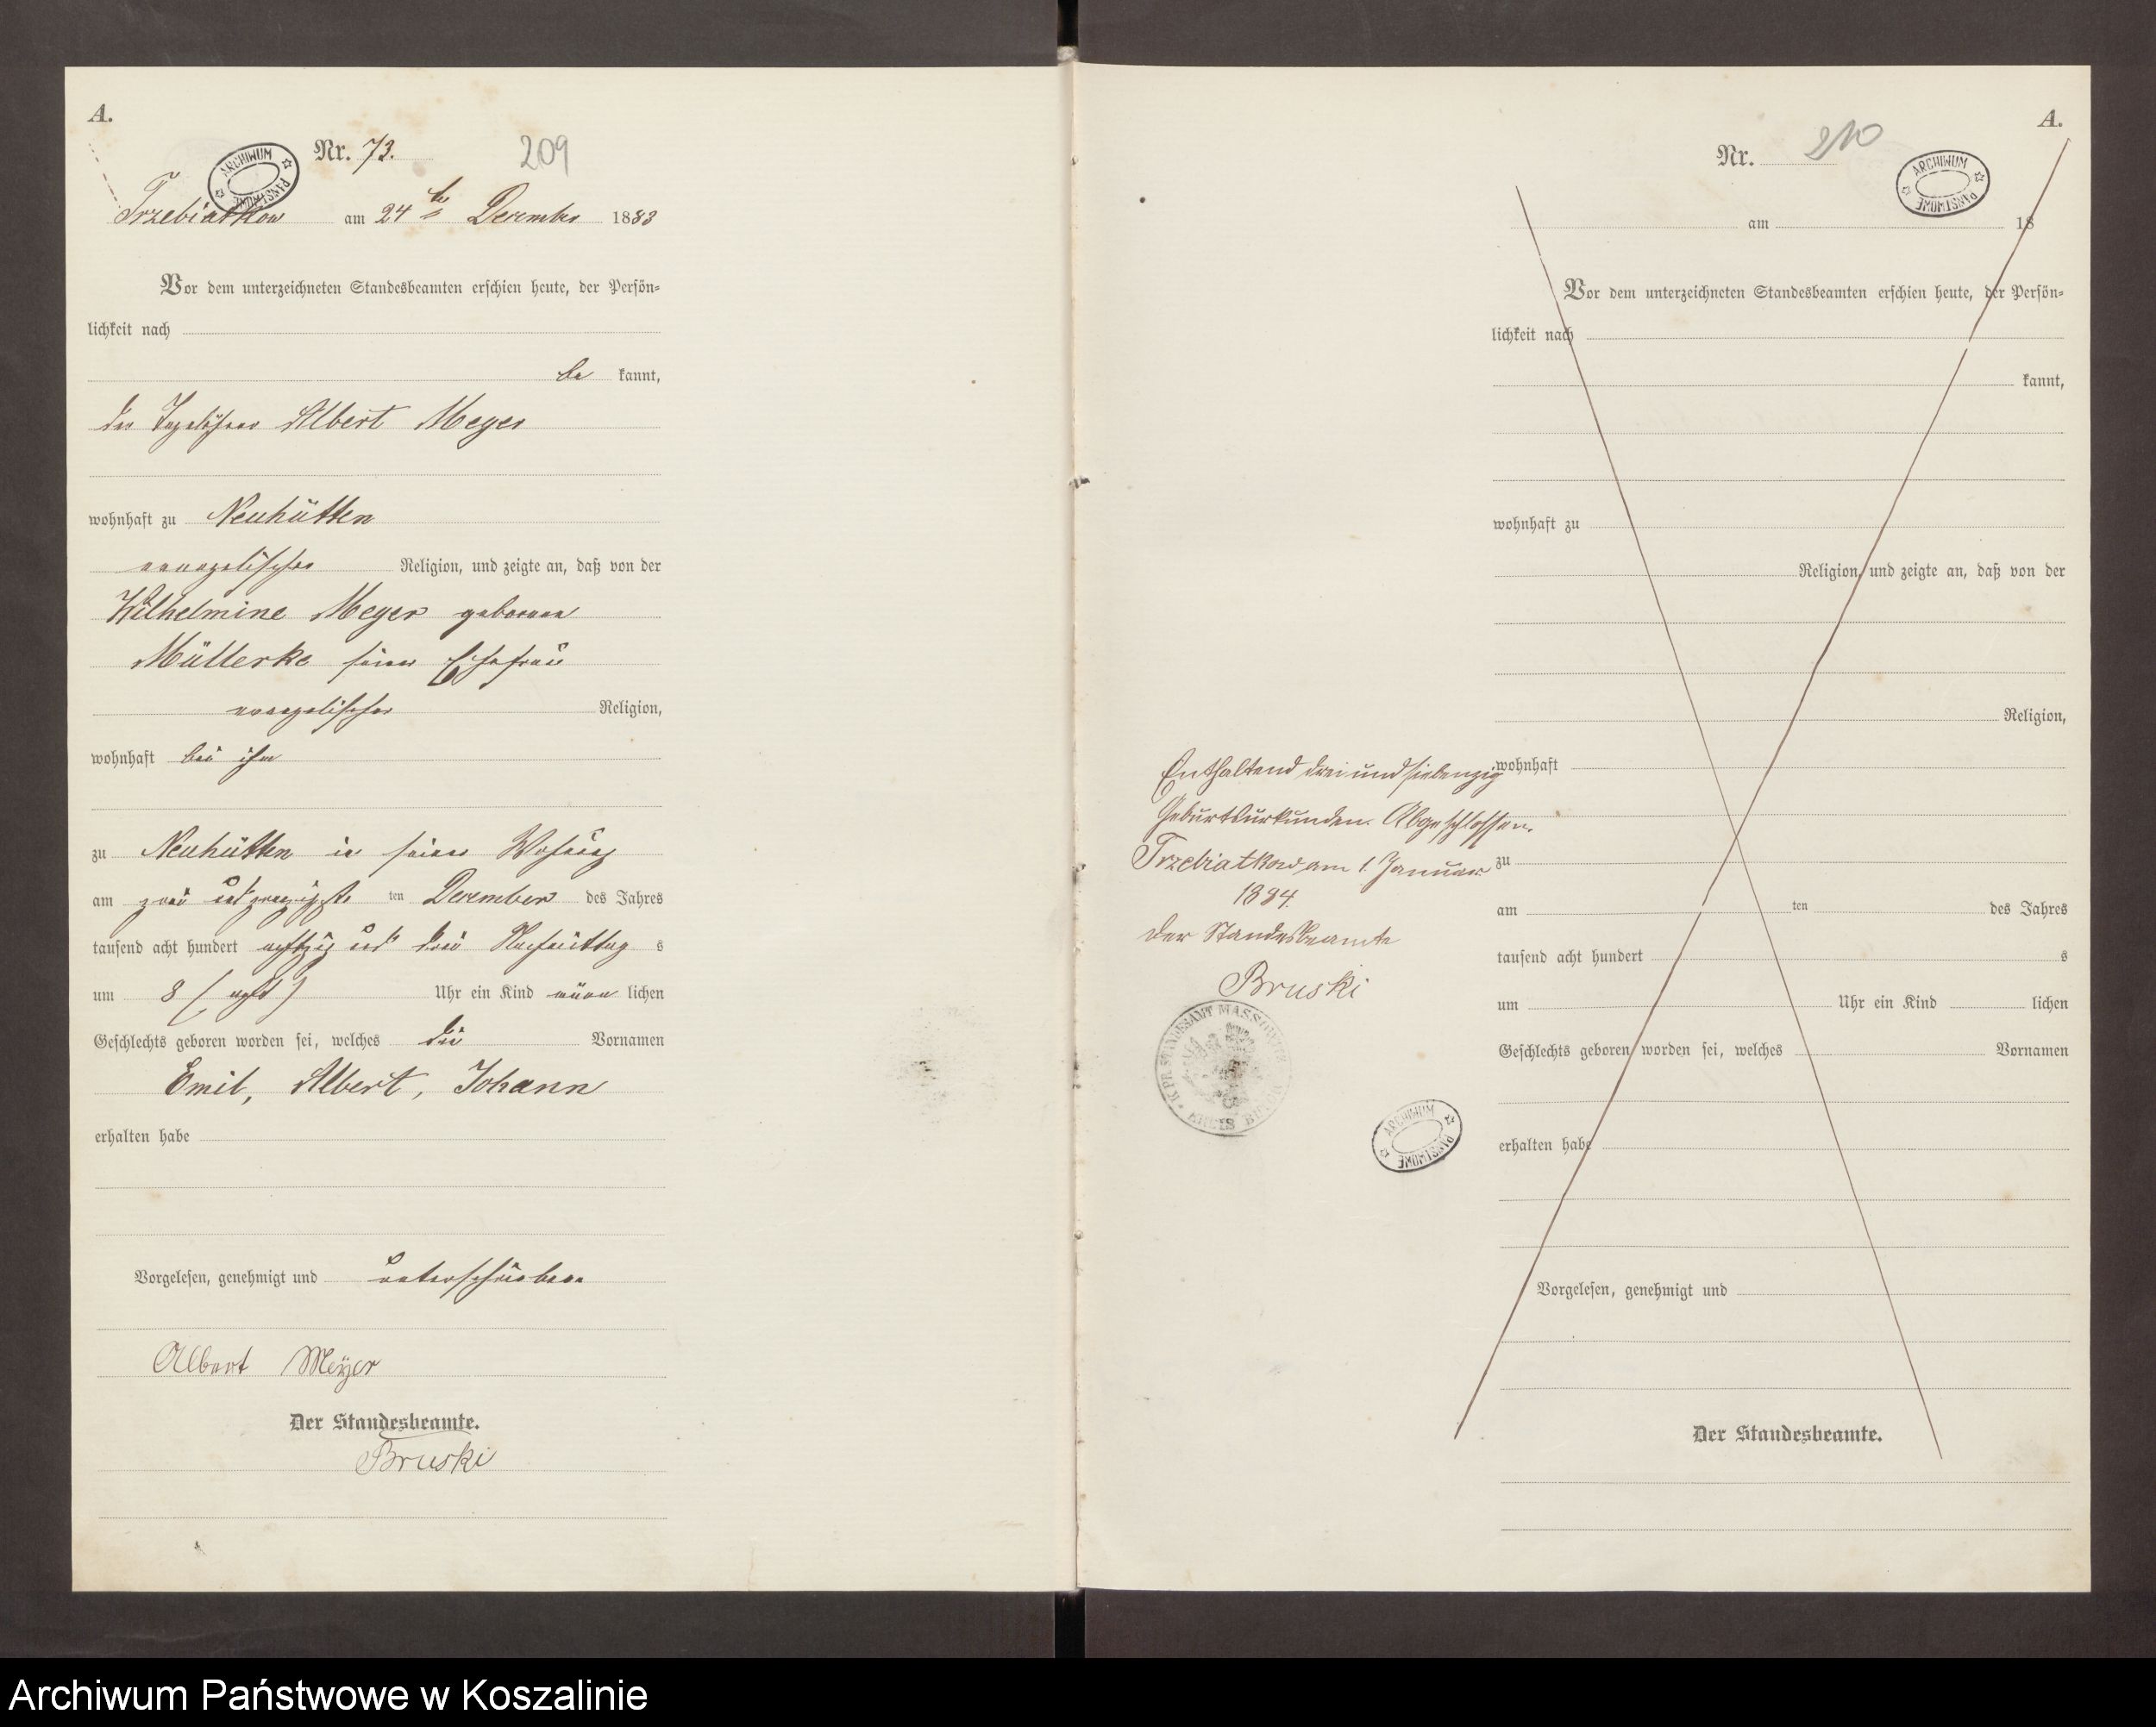 A.
Nr. 73.
209
ARCHIWUM PAŃSTWOWE
Trzebiatkow am 24ten December 1883
Vor dem unterzeichneten Standesbeamten erschien heute, der Persön-
lichkeit nach
be kannt,
der Tagelöhner Albert Meyer
wohnhaft zu Neuhütten
evangelischer Religion, und zeigte an, daß von der
Wilhelmine Meyer geborene
Müllerke seiner Ehefrau
evangelischer Religion,
wohnhaft bei ihm
zu Neuhütten in seiner Wohnung
am zwei und zwanzigsten ten December des Jahres
tausend acht hundert achtzig und drei Nachmittag s
um 8 (acht) Uhr ein Kind männ lichen
Geschlechts geboren worden sei, welches die Vornamen
Emil, Albert, Johann
erhalten habe
Vorgelesen, genehmigt und unterschrieben
Albert Meÿer
Der Standesbeamte.
Bruski
A.
Nr.
210
ARCHIWUM PAŃSTWOWE
am 18
Vor dem unterzeichneten Standesbeamten erschien heute, der Persön-
lichkeit nach
kannt,
wohnhaft zu
Religion, und zeigte an, daß von der
Religion,
wohnhaft
zu
am ten des Jahres
tausend acht hundert s
um Uhr ein Kind lichen
Geschlechts geboren worden sei, welches Vornamen
erhalten habe
Vorgelesen, genehmigt und
Der Standesbeamte.
Enthaltend drei und siebenzig
Geburtsurkunden. Abgeschlossen.
Trzebiatkow am 1. Januar
1884.
Der Standesbeamte
Bruski
K. PR. STANDESAMT MASSOWITZ
KREIS BÜTOW
ARCHIWUM PAŃSTWOWE
Archiwum Państwowe w Koszalinie